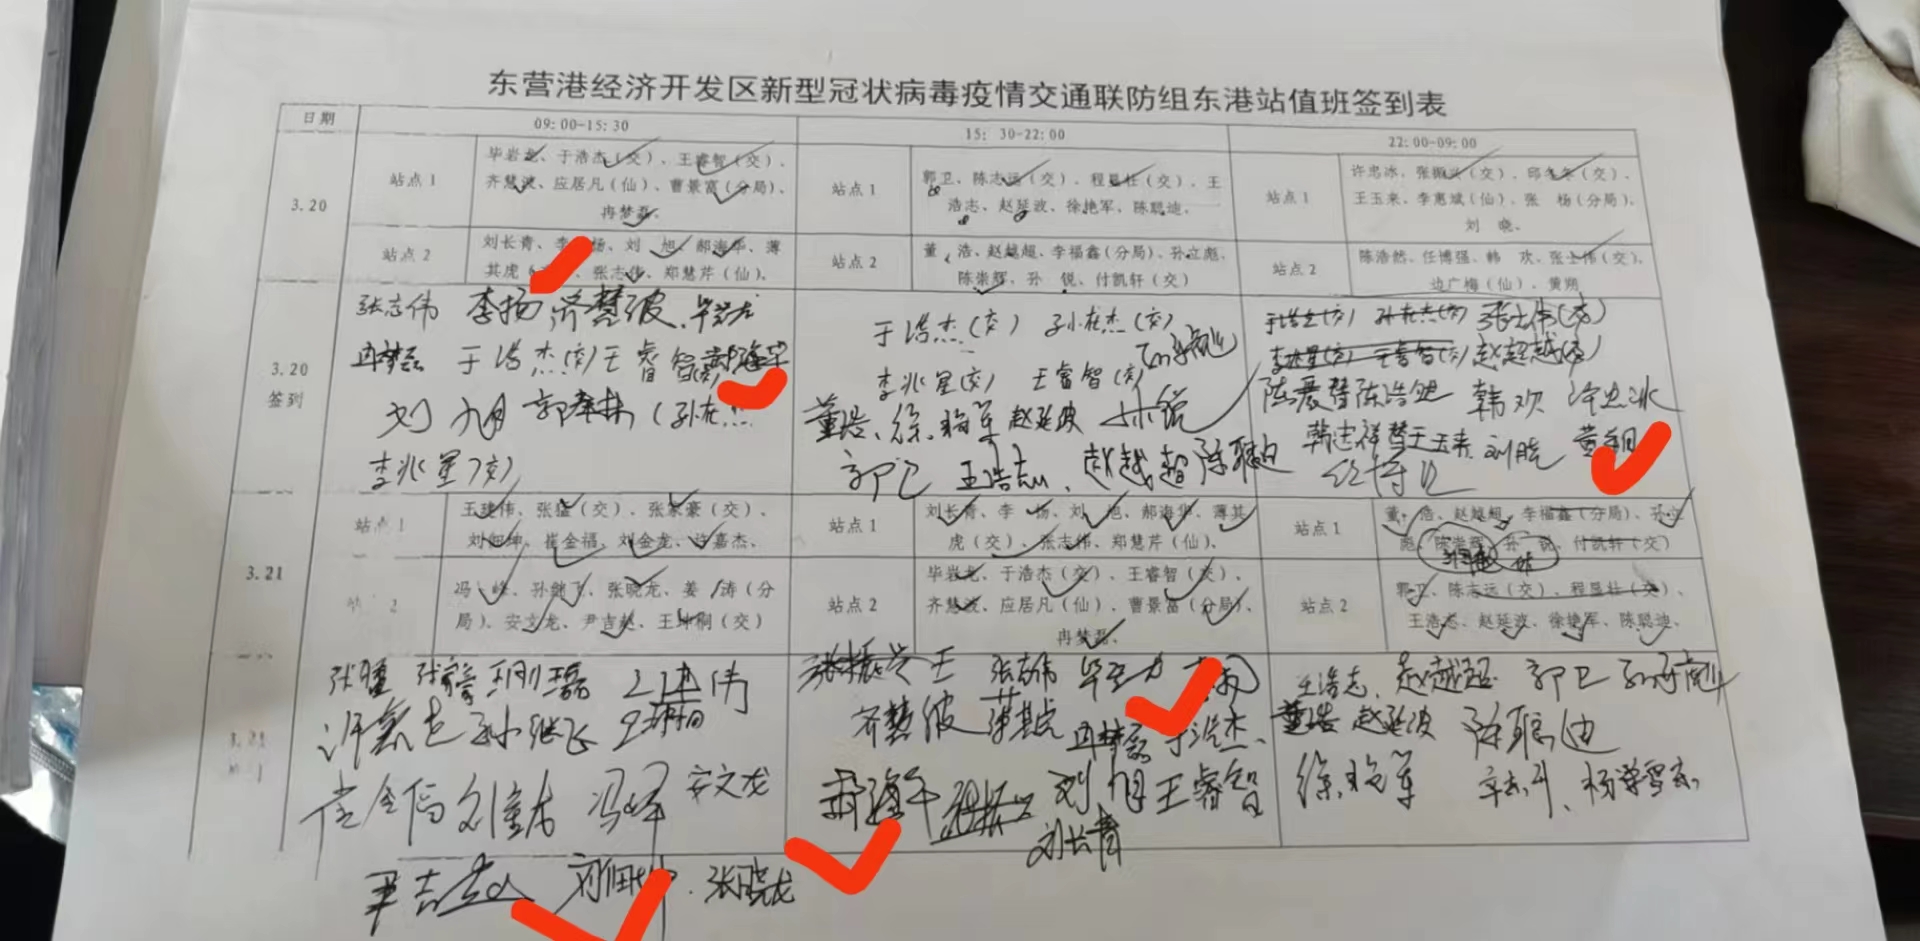 东营港经济开发区新型冠状病毒疫情交通联防组东港站值班签到表
日期 09:00-15:30 15:30-22:00 22:00-09:00
3.20
站点1
毕岩龙、于浩杰(交)、王睿智(交)、
齐慧波、应居凡(仙)、曹景富(分局)、
冉梦磊、
站点1
郭卫、陈志远(交)、程显柱(交)、王
浩志、赵延波、徐艳军、陈聪迪、
站点1
许忠冰、张振兴(交)、邱冬冬(交)、
王玉来、李惠斌(仙)、张 杨(分局)、
刘 晓、
站点2
刘长青、李 杨、刘 旭、郝海华、薄
其虎 张志伟、郑慧芹(仙)、
站点2
董 浩、赵越超、李福鑫(分局)、孙立彪、
陈崇辉、孙 锐、付凯轩(交)
站点2
陈浩然、任博强、韩 欢、张士伟(交)、
边广梅(仙)、黄翔
3.20
签到
张志伟 李扬 齐慧波、毕岩龙
冉梦磊 于浩杰(交) 王睿智(交) 郝海华
刘旭 郭奉林 (孙在杰
李兆星(交)
于浩杰(交) 孙在杰(交)
李兆星(交) 王睿智(交) 孙立彪
董浩、徐艳军 赵延波 孙锐
郭卫 王浩志、赵越超 陈聪迪
于浩杰(交) 孙在杰(交) 张士伟(交)
李兆星(交) 王睿智(交) 赵超越(交)
陈晨替陈浩然 韩欢 许忠冰
韩志祥替王玉来 刘晓 黄翔
3.21
站点1
王建伟、张猛(交)、张家豪(交)、
刘佃坤、崔金福、刘金龙、许嘉杰、
站点1
刘长青、李 杨、刘 旭、郝海华、薄其
虎(交)、张志伟、郑慧芹(仙)、
站点1
董 浩、赵越超、李福鑫(分局)、孙立
彪、陈崇辉、孙 锐、付凯轩(交)
2
冯 峰、孙继飞、张晓龙、姜 涛(分
局)、安文龙、尹吉超、王坤桐(交)
站点2
毕岩龙、于浩杰(交)、王睿智(交)、
齐慧波、应居凡(仙)、曹景富(分局)、
冉梦磊、
站点2
郭卫、陈志远(交)、程显柱(交)、
王浩志、赵延波、徐艳军、陈聪迪、
3.21
张猛 张家豪 王刚磊 王建伟
许嘉杰 孙继飞 王坤桐
崔金福 刘金龙 冯峰 安文龙
尹吉超 刘佃坤、张晓龙
张振兴 王 张志伟 毕岩龙
齐慧波 薄其虎 冉梦磊 于浩杰、
郝海华 刘旭 王睿智
刘长青
王浩志、赵越超 郭卫 孙立彪
董浩 赵延波 陈聪迪
徐艳军